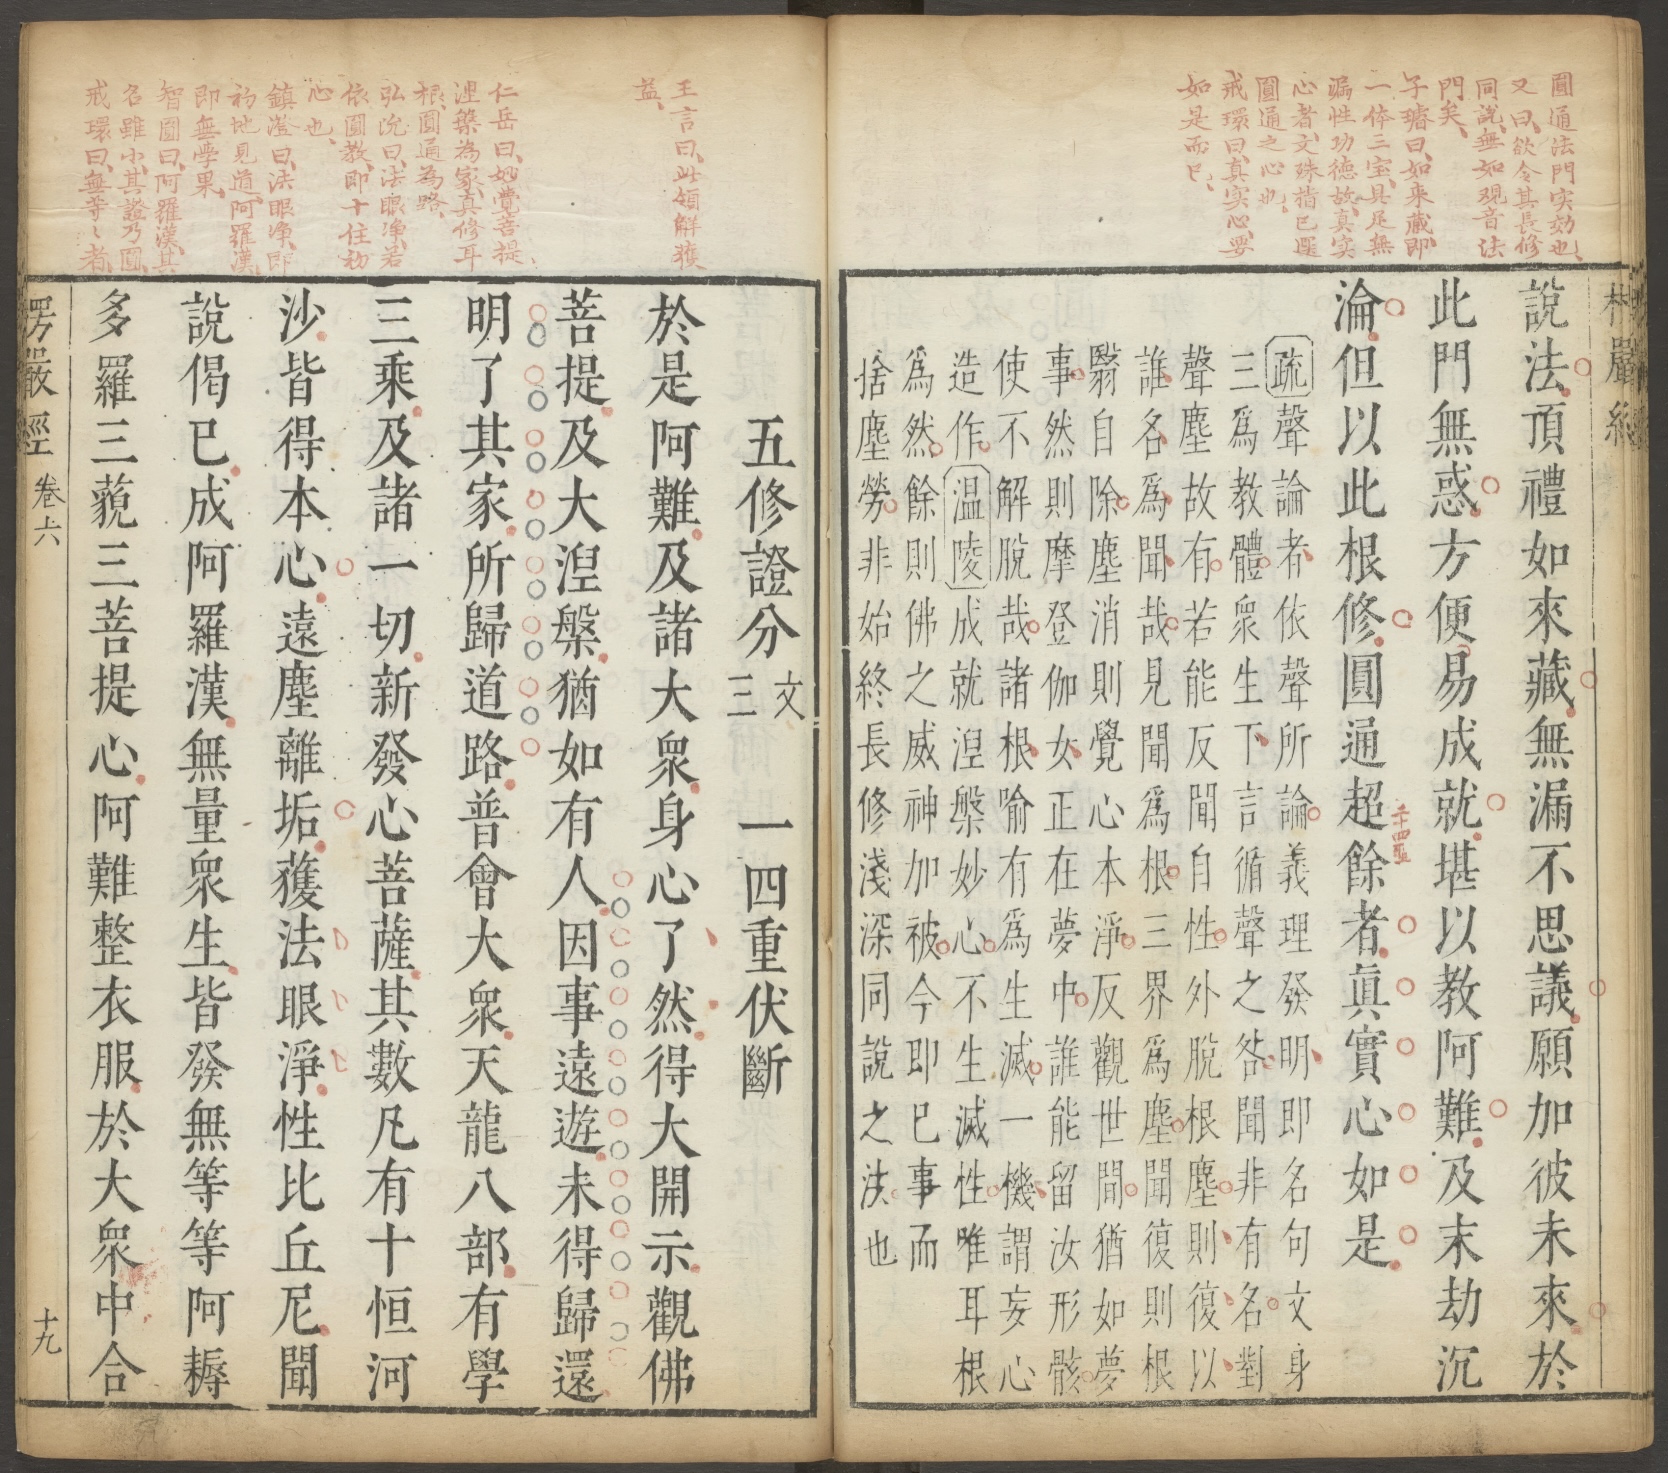 圓通法門实効也、
又曰、欲令其長修
同説、無如观音法
門矣、
子璿曰、如来蔵、即
一体三宝、具足無
漏性功德故、真实
心者、文殊指已選
圓通之心也、
戒環曰、真实心要
如是而已、
楞嚴經
說法頂禮如來藏無漏不思議願加彼未來於
此門無惑方便易成就堪以教阿難及末劫沉
淪但以此根修圓通超餘者眞實心如是
二十四聖
疏聲論者依聲所論義理發明即名句文身
三爲教體衆生下言循聲之咎聞非有名對
聲塵故有若能反聞自性外脫根塵則復以
誰名爲聞哉見聞爲根三界爲塵聞復則根
翳自除塵消則覺心本淨反觀世間猶如夢
事然則摩登伽女正在夢中誰能留汝形骸
使不解脫哉諸根喻有爲生滅一機謂妄心
造作溫陵成就涅槃妙心不生滅性唯耳根
爲然餘則佛之威神加被今即巳事而
捨塵勞非始終長修淺深同說之法也
王言曰、此領解獲
益、
仁岳曰、妙覺菩提、
涅槃為家、真修耳
根、圓通為路、
弘沇曰、法眼净、若
依圓教、即十住初
心也、
鎮澄曰、法眼净、即
初地見道、阿羅漢、
即無學果、
智圓曰、阿羅漢、其
名雖小、其證乃圓、
戒環曰、無等〻者、
五修證分文三 一四重伏斷
於是阿難及諸大衆身心了然得大開示觀佛
菩提及大涅槃猶如有人因事遠遊未得歸還
明了其家所歸道路普會大衆天龍八部有學
三乘及諸一切新發心菩薩其數凡有十恒河
沙皆得本心遠塵離垢獲法眼淨性比丘尼聞
說偈巳成阿羅漢無量衆生皆發無等等阿耨
多羅三藐三菩提心阿難整衣服於大衆中合
楞嚴經 卷六 十九